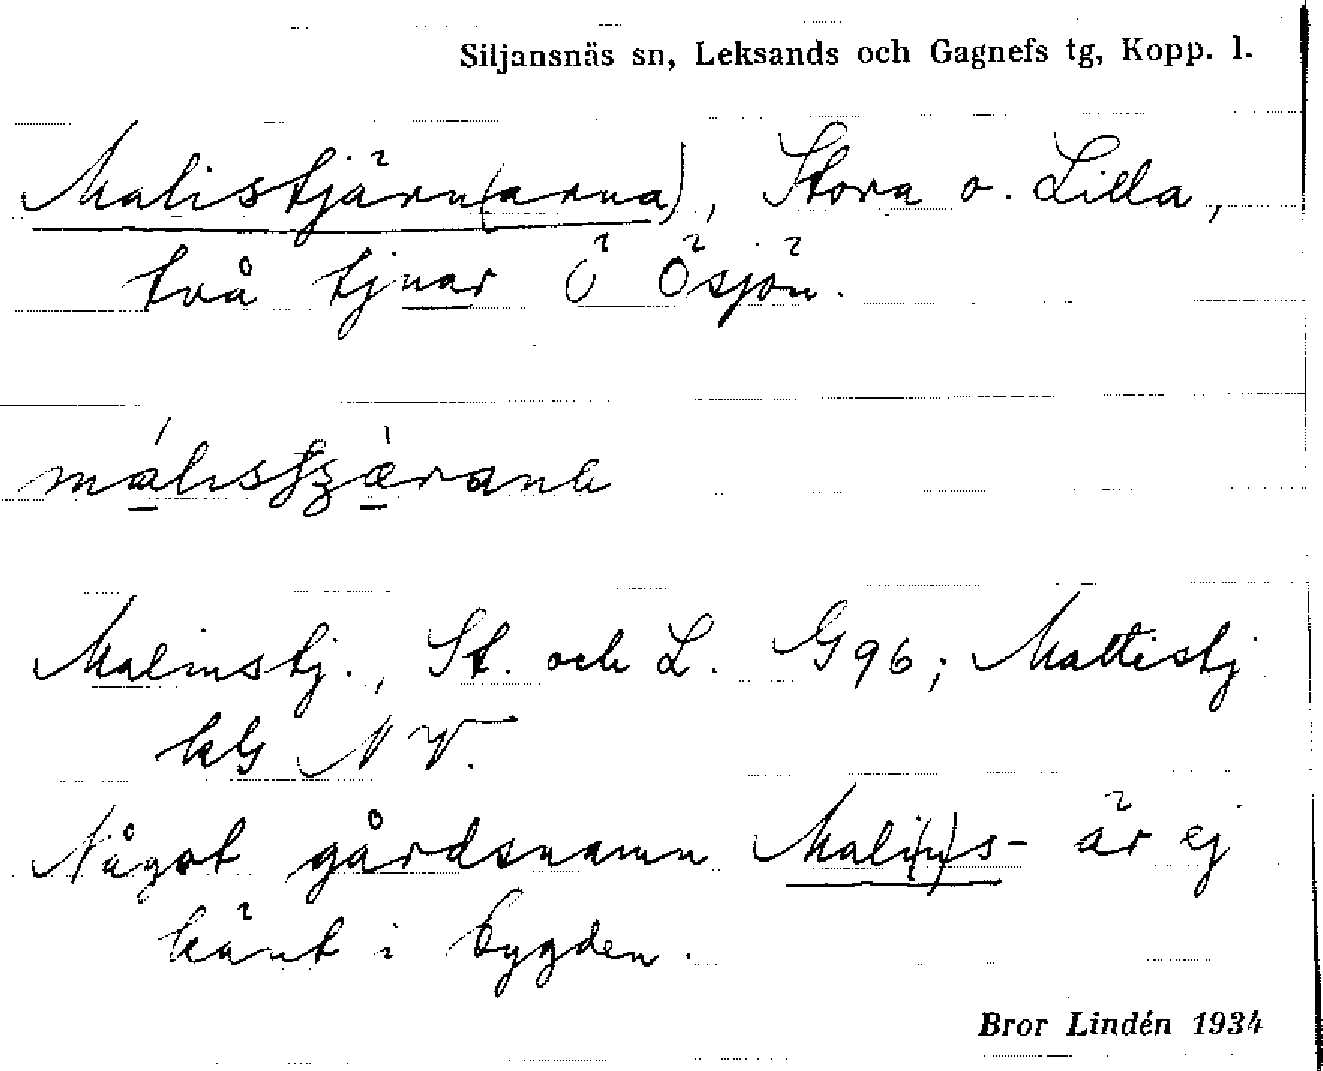 Siljansnäs sn, Leksands och Gagnefs tg, Kopp. l.
Malistjärn(arna), Stora o. Lilla,
två tjnar Ö Ösjön.
Malmstj., St. och L. G96; Mattistj
NV.
Något gårdsnamn Mali(n)s- är ej
känt i bygden.
Bror Lindén 1934